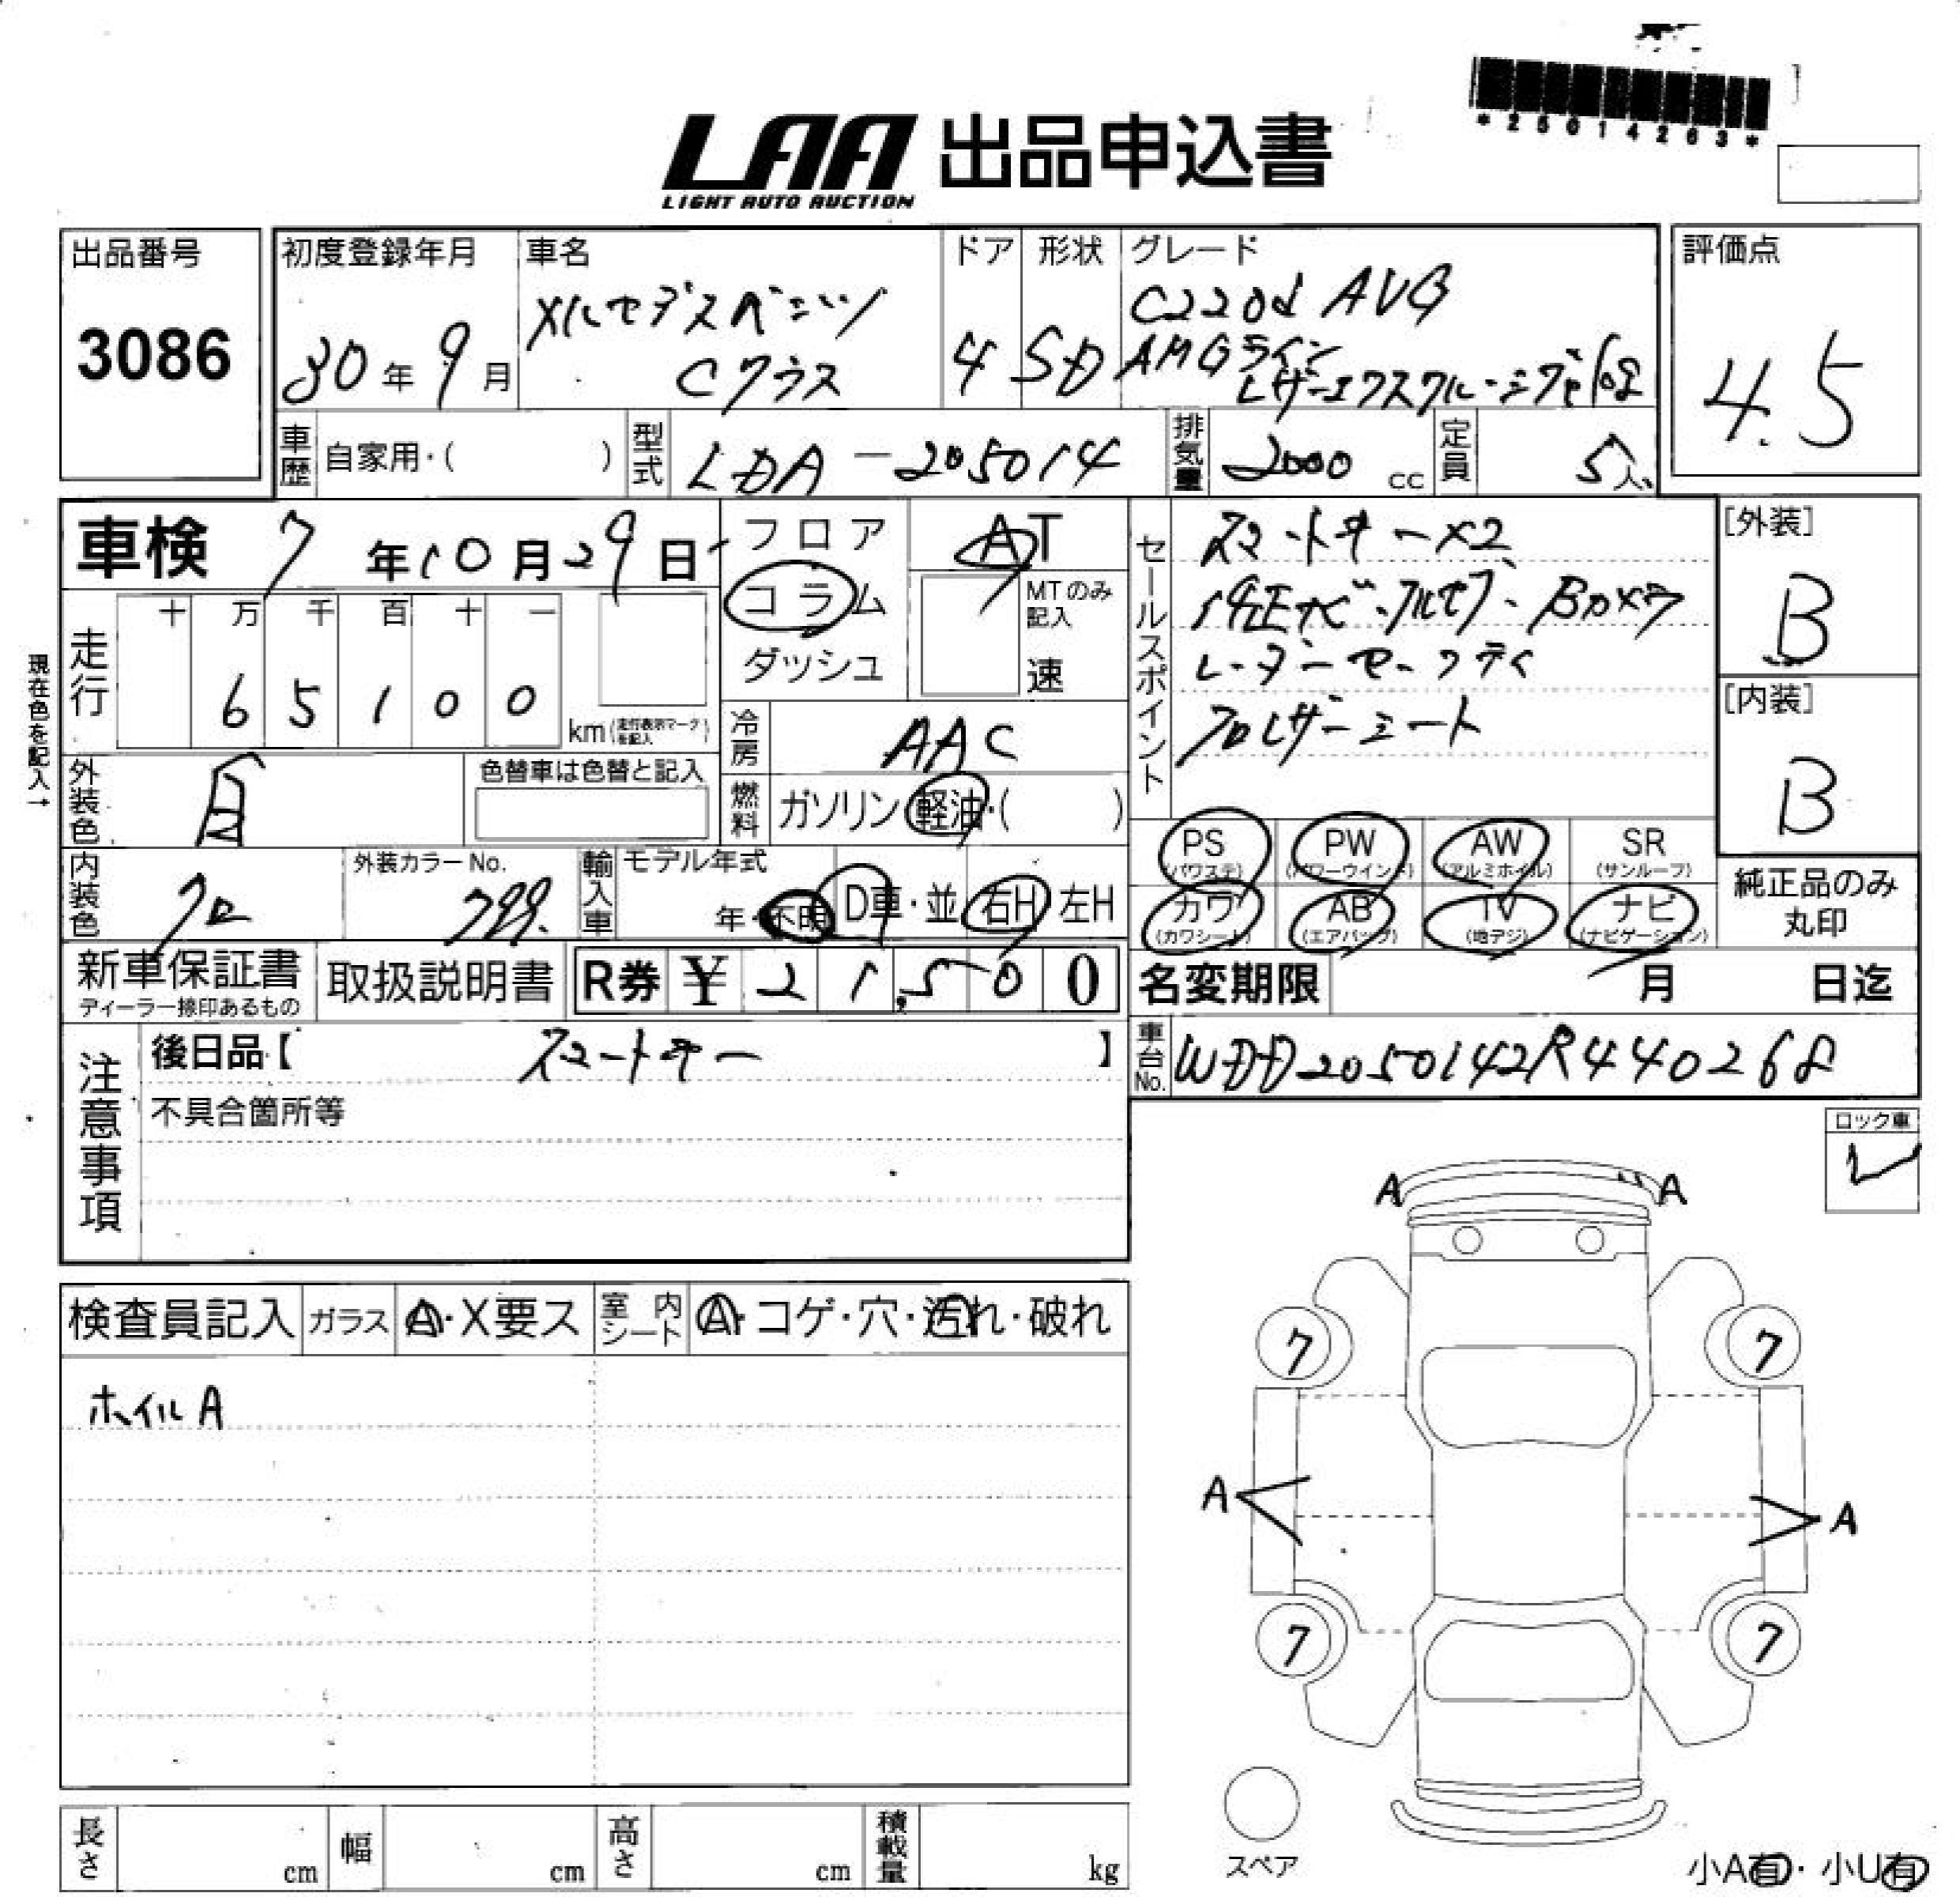 *25014263*
LAA 出品申込書
LIGHT AUTO AUCTION
出品番号
3086
初度登録年月
30年9月
車名
メルセデスベンツ
Cクラス
ドア
4
形状
SD
グレード
C220d AVG
AMGライン
レザーエクスクルーシブP/KG
評価点
4.5
車歴 自家用・( )
型式 LDA-205014
排気量 2000 cc
定員 5人
車検 7年10月29日
フロア
コラム
ダッシュ
AT
MTのみ記入
速
現在色を記入→
走行
十 万 千 百 十 一
6 5 1 0 0
km (走行表示マークを記入)
冷房 AAC
外装色 白
色替車は色替と記入
燃料 ガソリン・軽油・( )
内装色 クロ
外装カラーNo.
799
輸入車
モデル年式
年・不明
D車・並
右H 左H
セールスポイント
スマートキー×2
純正ナビ・フルセグ・Bカメラ
レーダーセーフティ
クロレザーシート
[外装]
B
[内装]
B
PS
(パワステ)
PW
(パワーウインド)
AW
(アルミホイル)
SR
(サンルーフ)
カワ
(カワシート)
AB
(エアバッグ)
TV
(地デジ)
ナビ
(ナビゲーション)
純正品のみ
丸印
新車保証書
ディーラー捺印あるもの
取扱説明書
R券 ¥ 21,500
名変期限 月 日迄
注意事項
後日品【 スマートキー 】
不具合箇所等
車台No. WDD2050142R440268
ロック車
✓
検査員記入
ガラス A・X要ス
室内シート A・コゲ・穴・汚れ・破れ
ホイルA
A A
7 7
A A
7 7
スペア
長さ cm
幅 cm
高さ cm
積載量 kg
小A有・小U有